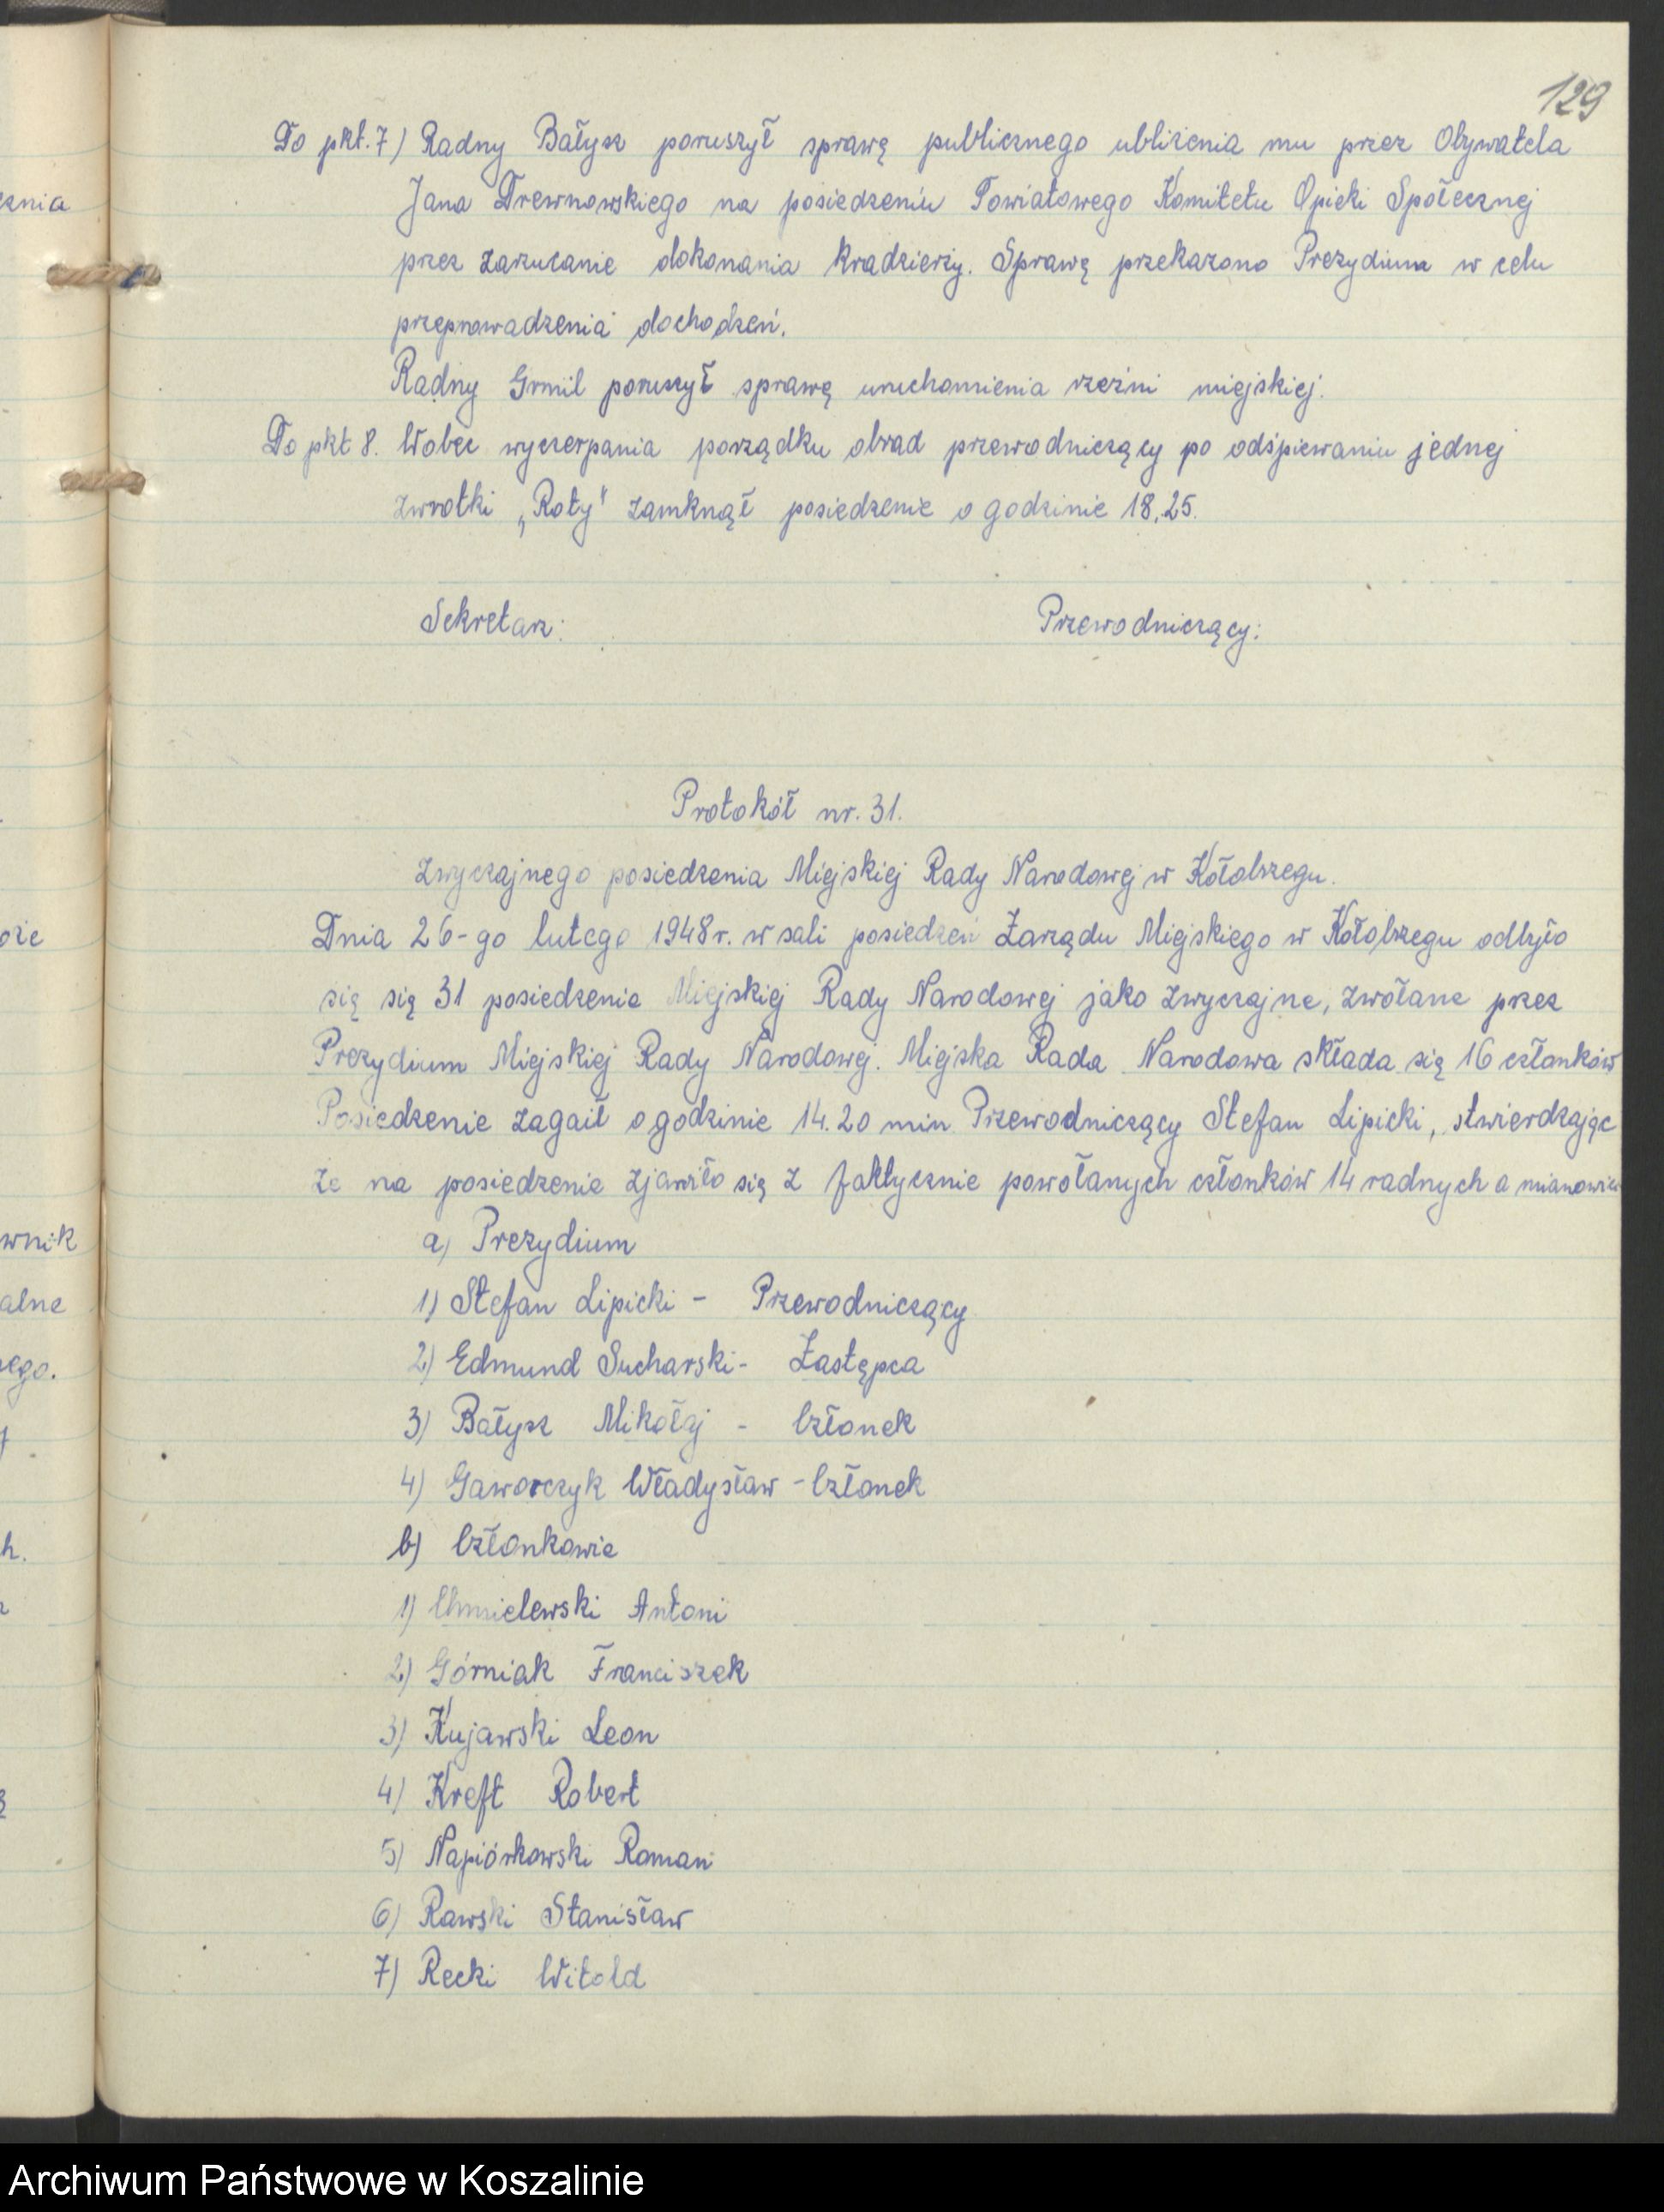 129
Do pkt. 7) Radny Bałysz poruszył sprawę publicznego ubliżenia mu przez Obywatela
Jana Drewnowskiego na posiedzeniu Powiatowego Komitetu Opieki Społecznej
przez zarzucanie dokonania kradzierzy. Sprawę przekazono Prezydium w celu
przeprowadzenia dochodzeń.
Radny Grmil poruszył sprawę uruchomienia rzeźni miejskiej.
Do pkt 8. Wobec wyczerpania porządku obrad przewodniczący po odśpiewaniu jednej
zwrotki „Roty" zamknął posiedzenie o godzinie 18,25.
Sekretarz:
Przewodniczący:
Protokół nr. 31.
zwyczajnego posiedzenia Miejskiej Rady Narodowej w Kołobrzegu.
Dnia 26-go lutego 1948 r. w sali posiedzeń Zarządu Miejskiego w Kołobrzegu odbyło
się się 31 posiedzenie Miejskiej Rady Narodowej jako zwyczajne, zwołane przez
Prezydium Miejskiej Rady Narodowej. Miejska Rada Narodowa składa się 16 członków
Posiedzenie zagaił o godzinie 14.20 min Przewodniczący Stefan Lipicki, stwierdzając
że na posiedzenie zjawiło się z faktycznie powołanych członków 14 radnych a mianowicie
a) Prezydium
1) Stefan Lipicki - Przewodniczący
2) Edmund Sucharski - Zastępca
3) Bałysz Mikołaj - Członek
4) Gaworczyk Władysław - Członek
b) Członkowie
1) Chmielewski Antoni
2) Górniak Franciszek
3) Kujawski Leon
4) Kreft Robert
5) Napiórkowski Roman
6) Rawski Stanisław
7) Recki Witold
cznia
oże
wnik
alne
ego.
h.
Archiwum Państwowe w Koszalinie